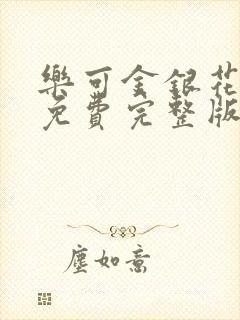 樂可金銀花
免費完整版
塵如意